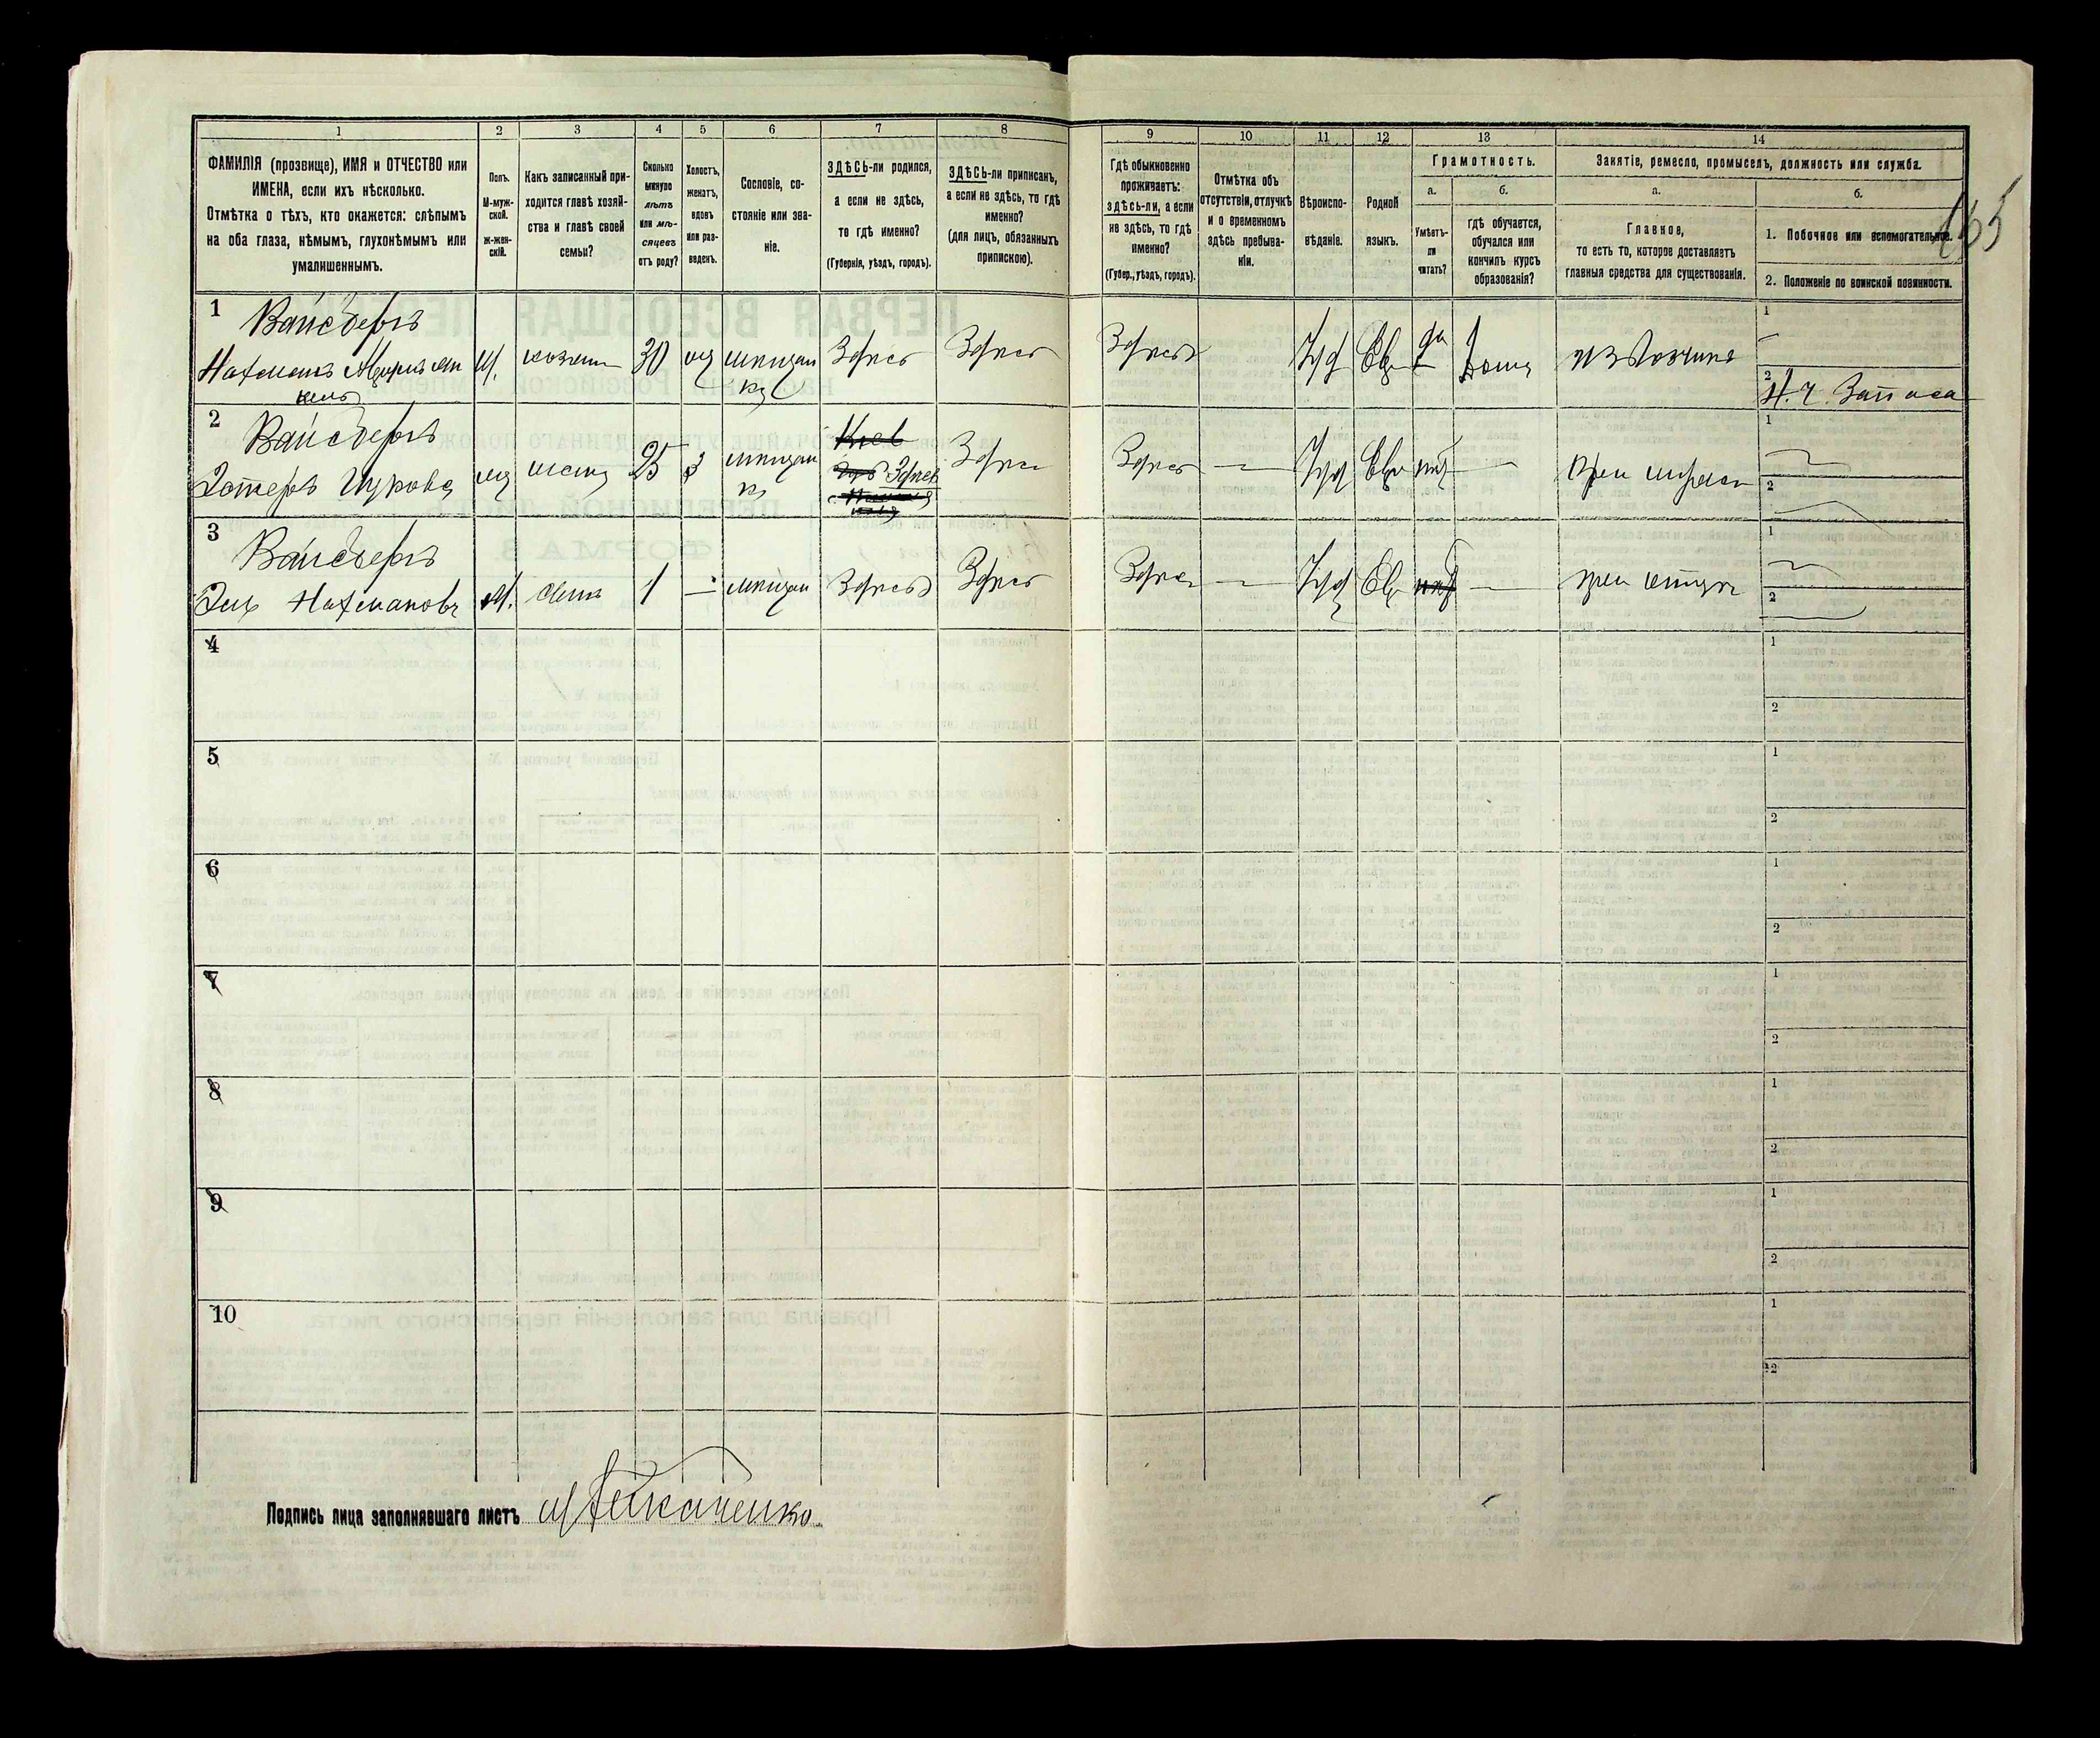 1 2 3 4 5 6 7 8 9 10 11 12 13 14
ФАМИЛІЯ (прозвище), ИМЯ и ОТЧЕСТВО или
ИМЕНА, если ихъ нѣсколько.
Отмѣтка о тѣхъ, кто окажется: слѣпымъ
на оба глаза, нѣмымъ, глухонѣмымъ или
умалишеннымъ.
Полъ.
М-муж-
ской.
Ж-жен-
скій.
Какъ записанный при-
ходится главѣ хозяй-
ства и главѣ своей
семьи?
Сколько
минуло
лѣтъ
или мѣ-
сяцевъ
отъ роду?
Холостъ,
женатъ,
вдовъ
или раз-
веденъ.
Сословіе, со-
стояніе или зва-
ніе.
ЗДѢСЬ-ли родился,
а если не здѣсь,
то гдѣ именно?
(Губернія, уѣздъ, городъ).
ЗДѢСЬ-ли приписанъ,
а если не здѣсь, то гдѣ
именно?
(для лицъ, обязанныхъ
припискою).
Гдѣ обыкновенно
проживаетъ:
здѣсь-ли, а если
не здѣсь, то гдѣ
именно?
(Губер., уѣздъ, городъ).
Отмѣтка объ
отсутствіи, отлучкѣ
и о временномъ
здѣсь пребыва-
ніи.
Вѣроиспо-
вѣданіе.
Родной
языкъ.
Грамотность.
а.
Умѣетъ-
ли
читать?
б.
гдѣ обучается,
обучался или
кончилъ курсъ
образованія?
Занятіе, ремесло, промыселъ, должность или служба.
а.
Главное,
то есть то, которое доставляетъ
главныя средства для существованія.
б.
1. Побочное или вспомогательное.
2. Положеніе по воинской повинности.
1 Вайсбергъ
Нахманъ
М. 30 Здѣсь Здѣсь Здѣсь Іуд Евр да Дома извозчикъ
1
2
2 Вайсбергъ
25 З Здѣсь Здѣсь Здѣсь — Іуд Евр — при мужѣ
1
2
3 Вайсбергъ
Нахмановъ М. сынъ 1 — мѣщан Здѣсь Здѣсь Здѣсь — Іуд Евр — при отцѣ
1
2
4
1
2
5
1
2
6
1
2
7
1
2
8
1
2
9
1
2
10
1
2
Подпись лица заполнявшаго листъ